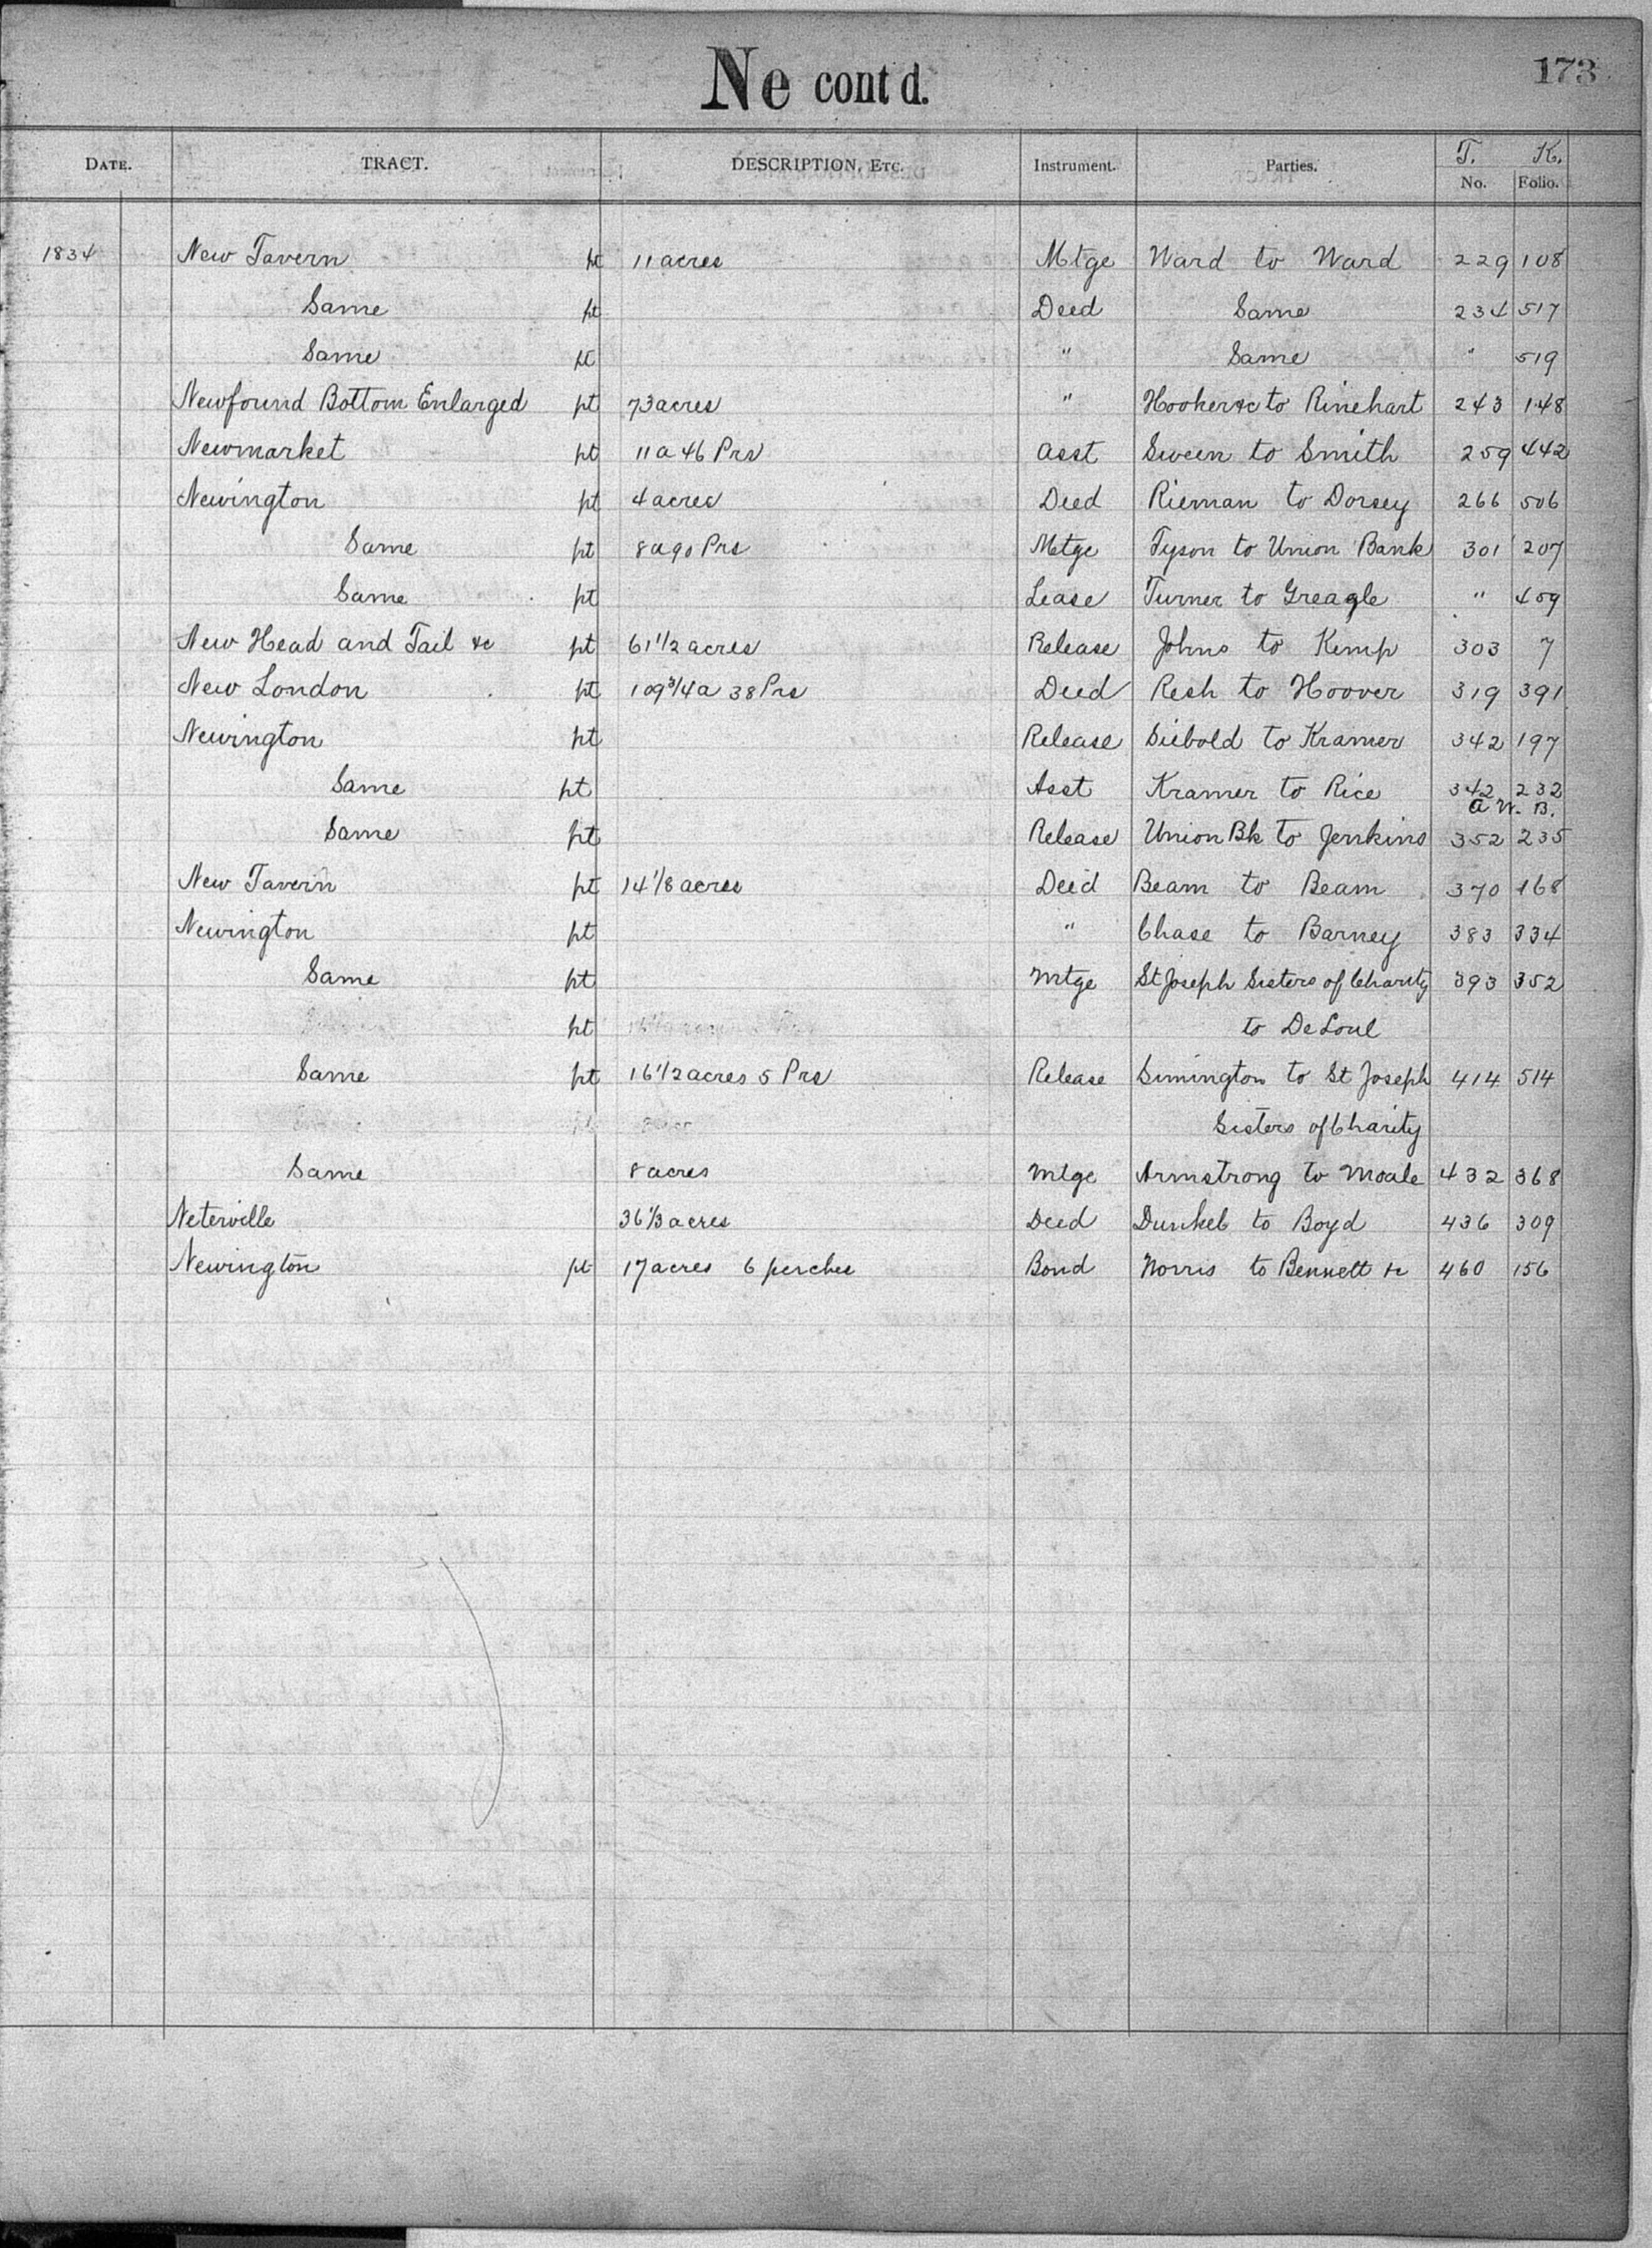 Ne cont d.
173
DATE. TRACT. DESCRIPTION, ETC. Instrument. Parties. T. K.
No. Folio.
1834 New Tavern pt 11 acres Mtge Ward to Ward 229 108
Same pt Deed Same 234 517
Same pt " Same " 519
Newfound Bottom Enlarged pt 73 acres " Hooker &c to Rinehart 243 148
Newmarket pt 11 a 46 Prs Asst Sween to Smith 259 442
Newington pt 4 acres Deed Rieman to Dorsey 266 506
Same pt 8 a 90 Prs Mtge Tyson to Union Bank 301 207
Same pt Lease Turner to Greagle " 409
New Head and Tail &c pt 61 1/2 acres Release Johns to Kemp 303 7
New London pt 109 3/4 a 38 Prs Deed Resh to Hoover 319 391
Newington pt Release Siebold to Kramer 342 197
Same pt Asst Kramer to Rice 342 232
A W. B.
Same pt Release Union Bk to Jenkins 352 235
New Tavern pt 14 1/8 acres Deed Beam to Beam 370 168
Newington pt " Chase to Barney 383 334
Same pt Mtge St Joseph Sisters of Charity 393 352
pt to DeLoul
Same pt 16 1/2 acres 5 Prs Release Simington to St Joseph 414 514
Sisters of Charity
Same 8 acres Mtge Armstrong to Moale 432 368
Neterville 36 1/3 acres Deed Dunkel to Boyd 436 309
Newington pt 17 acres 6 perches Bond Norris to Bennett &c 460 156